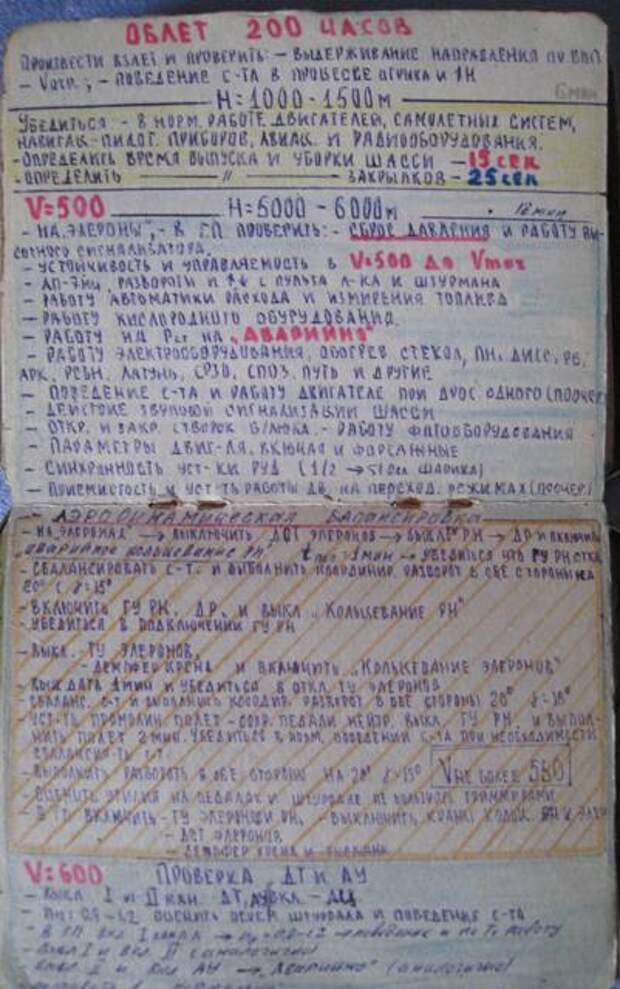 ОБЛЕТ 200 ЧАСОВ
ПРОИЗВЕСТИ ВЗЛЕТ И ПРОВЕРИТЬ: - ВЫДЕРЖИВАНИЕ НАПРАВЛЕНИЯ ПО ВПП
- Vотр.; - ПОВЕДЕНИЕ С-ТА В ПРОЦЕССЕ И НН
6 мин
Н=1000-1500м
УБЕДИТЬСЯ: - В НОРМ. РАБОТЕ ДВИГАТЕЛЕЙ, САМОЛЕТНЫХ СИСТЕМ,
НАВИГАЦ.-ПИЛОТ. ПРИБОРОВ, АВИАЦ. И РАДИООБОРУДОВАНИЯ.
- ОПРЕДЕЛИТЬ ВРЕМЯ ВЫПУСКА И УБОРКИ ШАССИ - 15 СЕК
- ОПРЕДЕЛИТЬ — " — ЗАКРЫЛКОВ - 25 СЕК
V=500 Н=5000-6000м мин
- НА "ЭЛЕРОНЫ", - В ГП ПРОВЕРИТЬ: - СБРОС ДАВЛЕНИЯ И РАБОТУ ВЫ-
СОТНОГО СИГНАЛИЗАТОРА.
- УСТОЙЧИВОСТЬ И УПРАВЛЯЕМОСТЬ В V=500 ДО Vmax
- АП-7мц, РАЗВОРОТИ И ↑↓ С ПУЛЬТА Л-КА И ШТУРМАНА
- РАБОТУ АВТОМАТИКИ РАСХОДА И ИЗМЕРЕНИЯ ТОПЛИВА
- РАБОТУ КИСЛОРОДНОГО ОБУРУДОВАНИЯ.
- РАБОТУ НА "АВАРИЙНО"
- РАБОТУ ЭЛЕКТРООБОРУДОВАНИЯ, ОБОГРЕВ СТЕКОЛ, ПН, ДИСС, РВ,
АРК, РСБН, ЛАТУНЬ, СРЗО, СПОЗ, ПУТЬ И ДРУГИЕ
- ПОВЕДЕНИЕ С-ТА И РАБОТУ ДВИГАТЕЛЕ ПРИ ОДНОГО (ПООЧЕР
- ДЕЙСТВИЕ ЗВУКОВОЙ СИГНАЛИЗАЦИИ ШАССИ
- ОТКР. И ЗАКР. СТВОРОК Б/ЛЮКА. - РАБОТУ ФОТООБОРУДОВАНИЯ
- ПАРАМЕТРЫ ДВИГ-ЛЯ. ВКЛЮЧАЯ И ФОРСАЖНЫЕ
- СИНХРОННОСТЬ УСТ-КИ РУД (1/2 ШАРИКА)
- ПРИЕМИСТОСТЬ И УСТ-ТЬ РАБОТЫ ДВ. НА ПЕРЕХОД. РЕЖИМАХ (ПООЧЕР.)
- АЭРОДИНАМИЧЕСКАЯ БАЛАНСИРОВКА
- НА "ЭЛЕРОНАХ" → ВЫКЛЮЧИТЬ ДСТ ЭЛЕРОНОВ → РН → ДР И ВКЛЮЧИТЬ
"АВАРИЙНОЕ КОЛЬЦЕВАНИЕ РН" 1 мин → УБЕДИТЬСЯ ЧТО ГУ РН ОТКЛ
- СБАЛАНСИРОВАТЬ С-Т. И ВЫПОЛНИТЬ КООРДИНИР. РАЗВОРОТ В ОБЕ СТОРОНЫ НА
20° С γ=15°
- ВКЛЮЧИТЬ ГУ РН, ДР, И ВЫКЛ "КОЛЬЦЕВАНИЕ РН"
- УБЕДИТЬСЯ В ПОДКЛЮЧЕНИИ ГУ РН
- ВЫКЛ. ГУ ЭЛЕРОНОВ,
- ДЕМПФЕР КРЕНА И ВКЛЮЧИТЬ "КОЛЬЦЕВАНИЕ ЭЛЕРОНОВ"
- ВЫЖДАТЬ 1 МИН И УБЕДИТЬСЯ В ОТКЛ. ГУ ЭЛЕРОНОВ
- СБАЛАНС. С-Т И ВЫПОЛНИТЬ КООРДИР. РАЗВОРОТ В ОБЕ СТОРОНЫ 20° γ=15°
- УСТ-ТЬ ПРЯМОЛИН ПОЛЕТ - ПЕДАЛИ НЕЙТР. ВЫКЛ. ГУ РН, И ВЫПОЛ-
НИТЬ ПОЛЕТ 2 МИН. УБЕДИТЬСЯ В НОРМ. ПОВЕДЕНИИ С-ТА ПРИ НЕОБХОДИМОСТИ
С-Т.
- ВЫПОЛНИТЬ РАЗВОРОТЫ В ОБЕ СТОРОНЫ НА 20° γ=15° Vне более 550
- ОЦЕНИТЬ УСИЛИЯ НА ПЕДАЛЯХ И ШТУРВАЛЕ ТРИММЕРАМИ
- В ГП ВКЛЮЧИТЬ - ГУ ЭЛЕРОНОВ И РН, - ВЫКЛЮЧИТЬ РН И
- ДСТ ЭЛЕРОНОВ
- ДЕМПФЕР КРЕНА И
V=600 ПРОВЕРКА ДТ И АУ
- ВЫКЛ I И II КАН. ДТ,
- ОЦЕНИТЬ ШТУРВАЛА И ПОВЕДЕНИЕ С-ТА
- В ГП ВКЛ I КАНАЛ → РАБОТУ
- ВЫКЛ I И ВКЛ II (АНАЛОГИЧНО)
- ВЫКЛ II И ВКЛ АУ → "АВАРИЙНО" (АНАЛОГИЧНО)